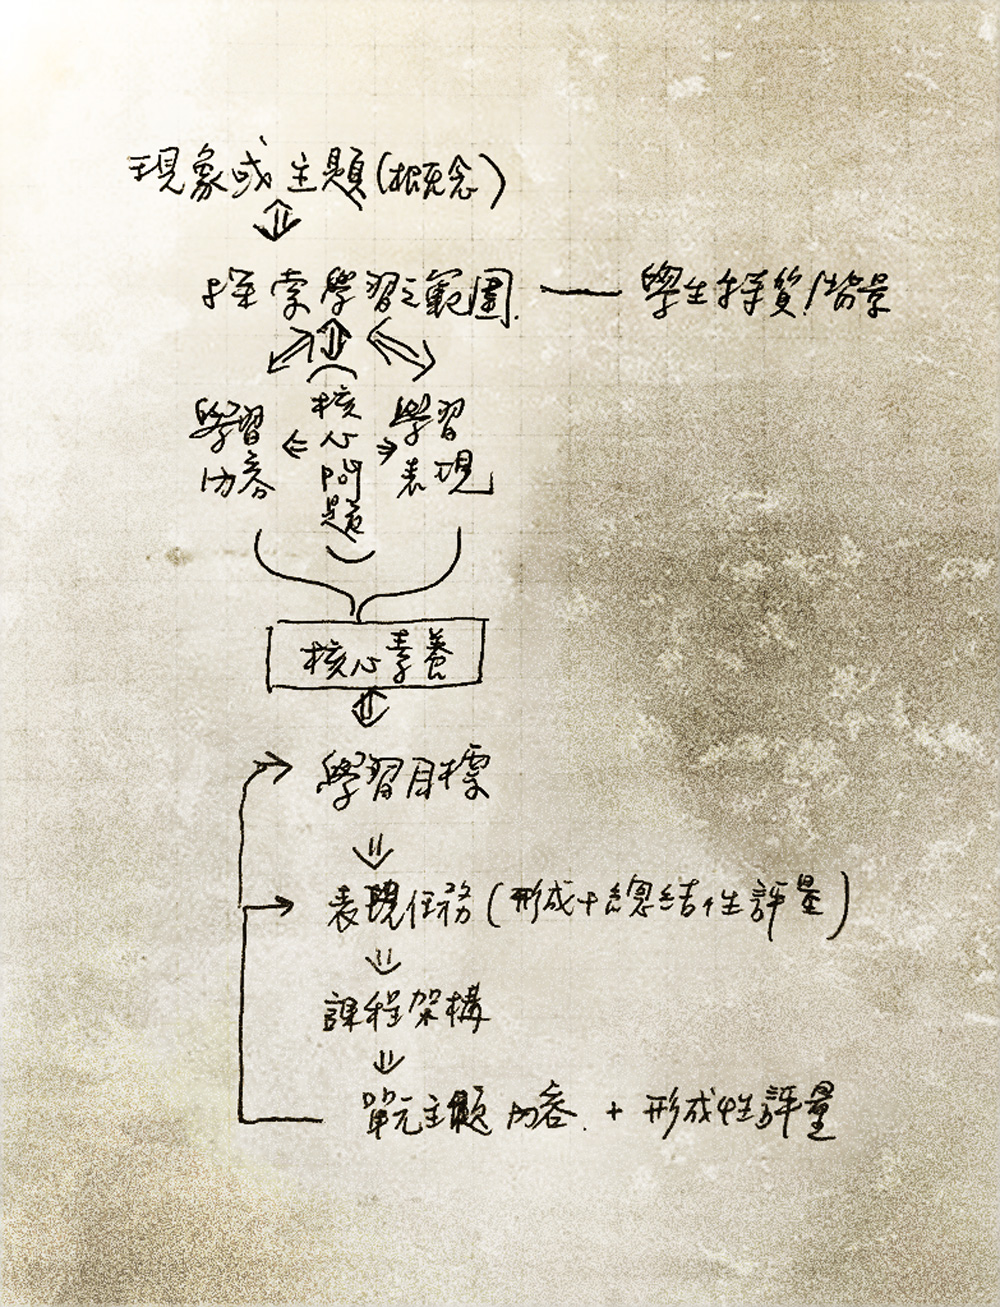 現象或主題(概念)
探索學習之範圍 — 學生特質/背景
學習內容
核心問題
學習表現
核心素養
學習目標
表現任務(形成+總結性評量)
課程架構
單元主題內容 + 形成性評量